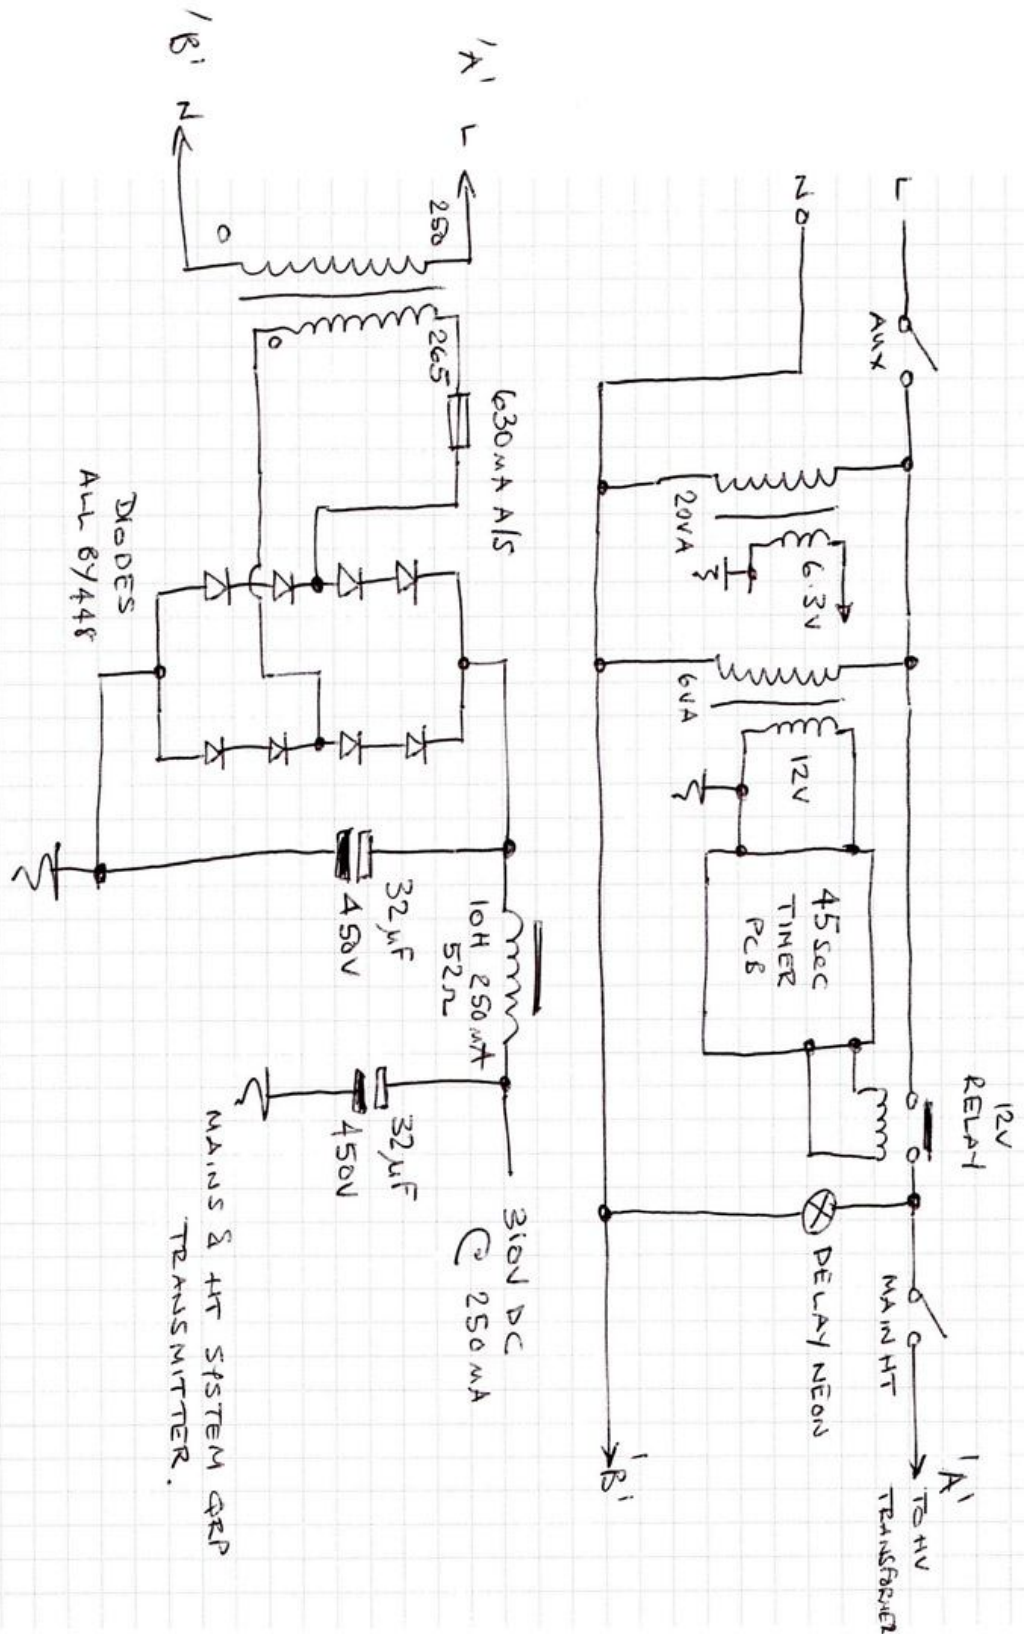 L
AUX
N
20VA
6.3V
6VA
12V
45 SEC
TIMER
PCB
12V
RELAY
DELAY NEON
MAIN HT
'A'
TO HV
TRANSFORMER
'B'
'A' L
250
0
'B' N
265
0
630mA A/S
DIODES
ALL BY448
32µF
450V
10H 250mA
52Ω
32µF
450V
310V DC
@ 250mA
MAINS & HT SYSTEM QRP
TRANSMITTER.